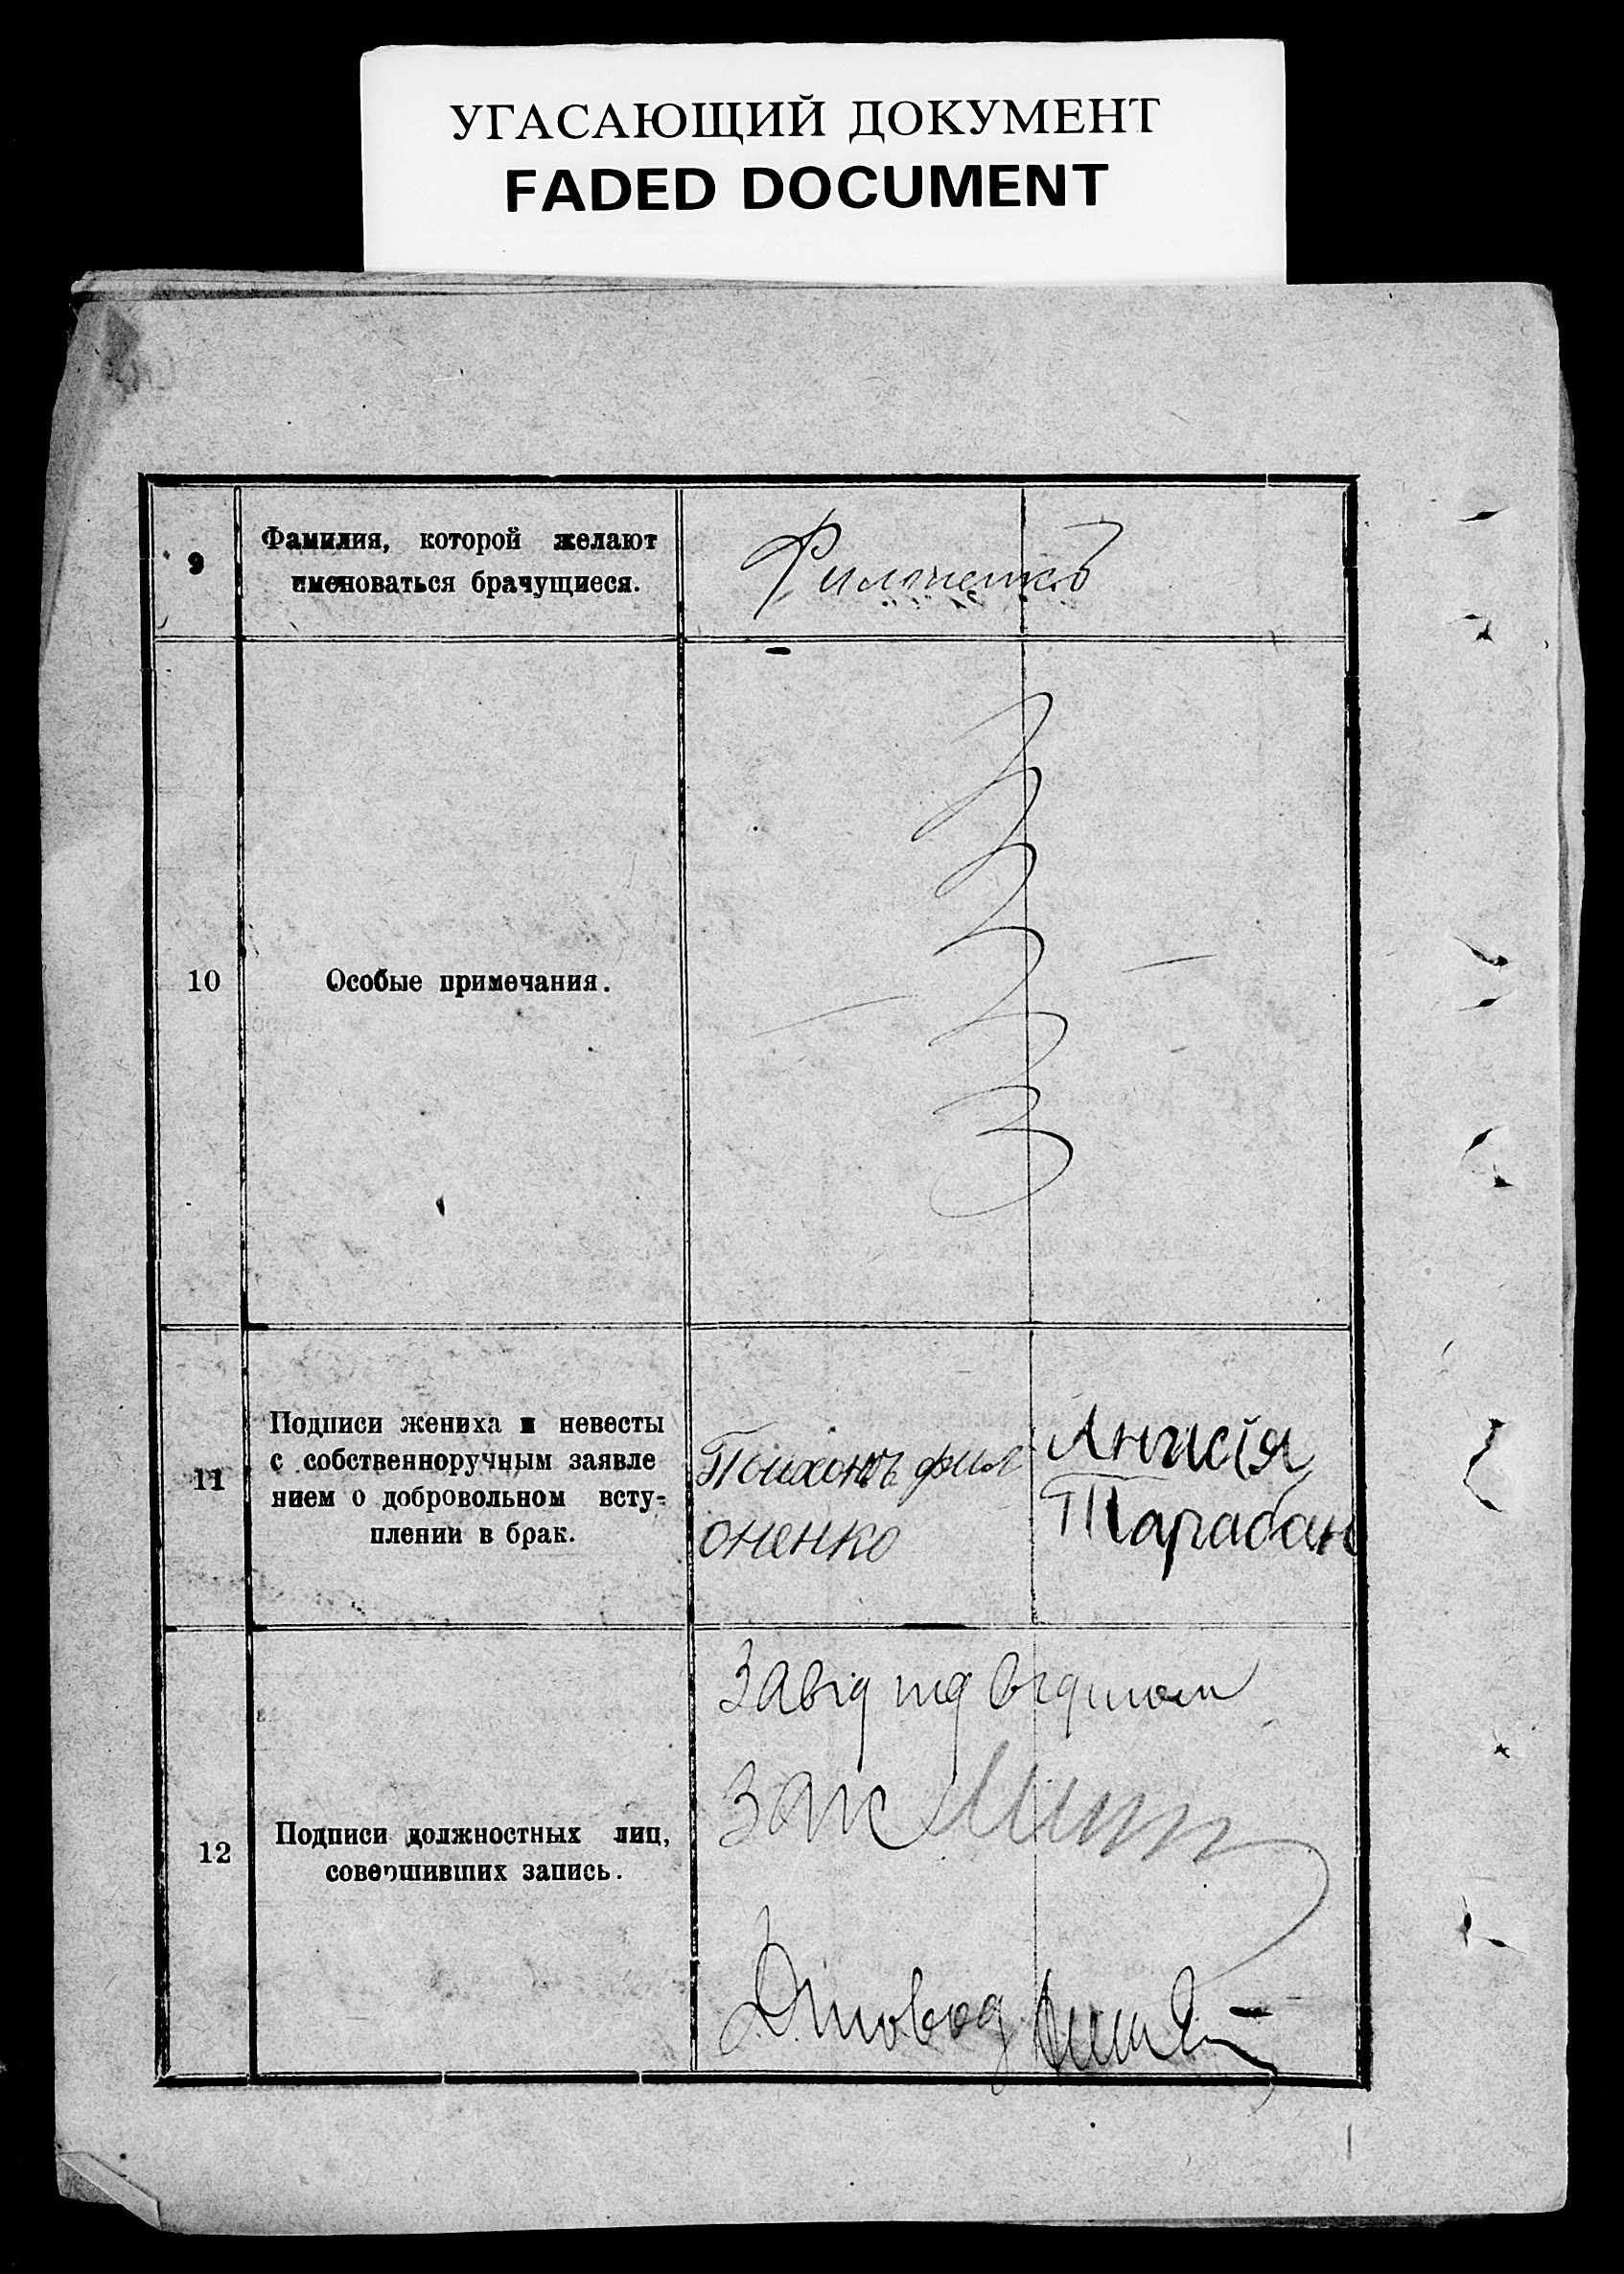 УГАСАЮЩИЙ ДОКУМЕНТ
FADED DOCUMENT
9
Фамилия, которой желают
именоваться брачущиеся.
Филоненко
10
Особые примечания.
11
Подписи жениха и невесты
с собственноручным заявле
нием о добровольном всту-
плении в брак.
Тихонъ фил
оненко
Анисія
Тарабан
12
Подписи должностных лиц,
совершивших запись.
Завід під відділом
Загс
Діловод